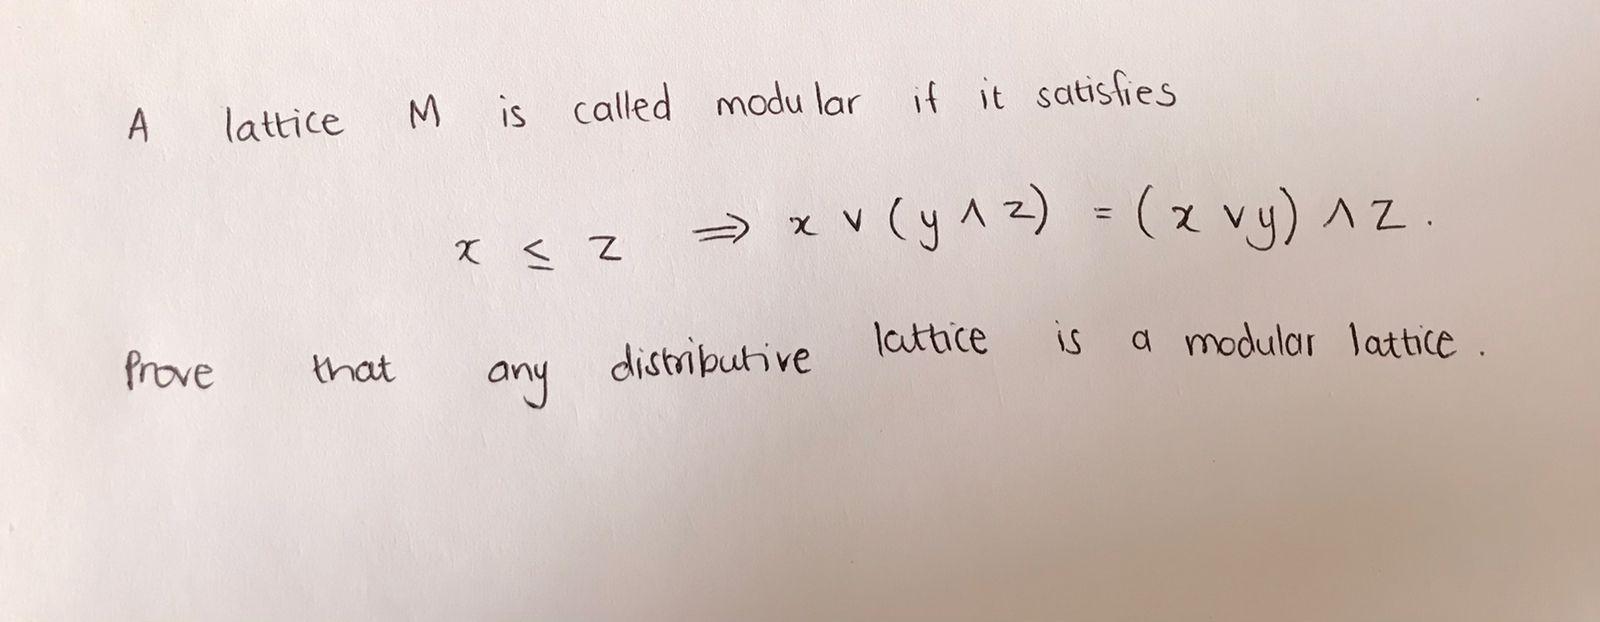 A lattice M is called modular if it satisfies
x ≤ z ⟹ x ∨ (y ∧ z) = (x ∨ y) ∧ z.
Prove that any distributive lattice is a modular lattice.